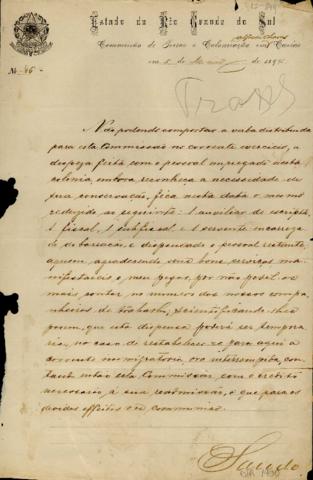 Estado do Rio Grande do Sul
Commissão de Terras e Colonisação em Caxias
em 5 de de 189
Nº 46
Não podendo comportar a verba distribuida
para esta Commissão no corrente exercicio, a
despeza feita com o pessoal empregado nesta
colonia, embora reconheça a necessidade de
sua conservação, fica nesta data o mesmo
reduzido ao seguinte: 1 auxiliar de escripta,
1 fiscal, 1 subfiscal e 1 servente encarrega-
do da barcação, e dispensado o pessoal restante,
a quem, agradecendo seus bons serviços ma-
nifestareis o meu pezar, por não podel-os
mais contar no numero dos nossos compa-
nheiros de trabalho, scientificando-lhes
porem, que esta dispensa poderá ser tempora-
ria, no caso de restabelecer-se para aqui a
corrente immigratoria, ora interrompida, con-
tando então esta Commissão com o credito
necessario á sua readmissão, o que para os
devidos effeitos vos communico.
Saude